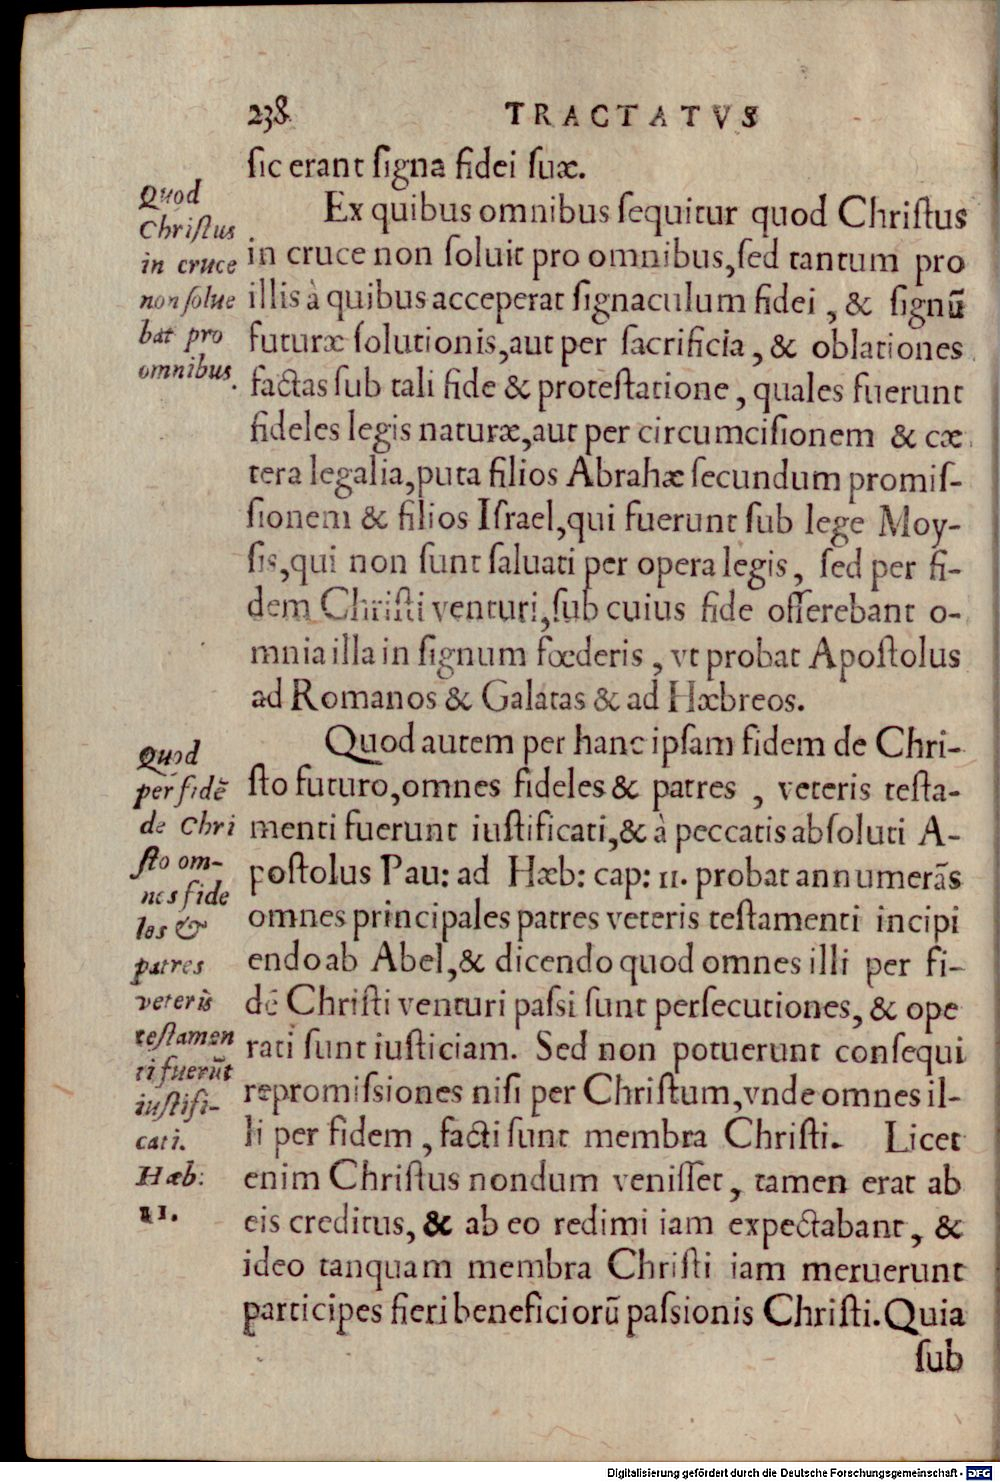 238. TRACTATVS
sic erant signa fidei suæ.
Quod
Christus
in cruce
non solue
bat pro
omnibus.
Ex quibus omnibus sequitur quod Christus
in cruce non soluit pro omnibus, sed tantum pro
illis à quibus acceperat signaculum fidei, & signū
futuræ solutionis, aut per sacrificia, & oblationes
factas sub tali fide & protestatione, quales fuerunt
fideles legis naturæ, aut per circumcisionem & cæ
tera legalia, puta filios Abrahæ secundum promis-
sionem & filios Israel, qui fuerunt sub lege Moy-
sis, qui non sunt saluati per opera legis, sed per fi-
dem Christi venturi, sub cuius fide offerebant o-
mnia illa in signum fœderis, vt probat Apostolus
ad Romanos & Galatas & ad Hæbreos.
Quod
per fidē
de Chri
sto om-
nes fide
les &
patres
veteris
testamen
ti fuerūt
iustifi-
cati.
Hæb:
11.
Quod autem per hanc ipsam fidem de Chri-
sto futuro, omnes fideles & patres, veteris testa-
menti fuerunt iustificati, & à peccatis absoluti A-
postolus Pau: ad Hæb: cap: 11. probat annumerās
omnes principales patres veteris testamenti incipi
endo ab Abel, & dicendo quod omnes illi per fi-
dē Christi venturi passi sunt persecutiones, & ope
rati sunt iusticiam. Sed non potuerunt consequi
repromissiones nisi per Christum, vnde omnes il-
li per fidem, facti sunt membra Christi. Licet
enim Christus nondum venisset, tamen erat ab
eis creditus, & ab eo redimi iam expectabant, &
ideo tanquam membra Christi iam meruerunt
participes fieri beneficiorū passionis Christi. Quia
sub
Digitalisierung gefördert durch die Deutsche Forschungsgemeinschaft - DFG